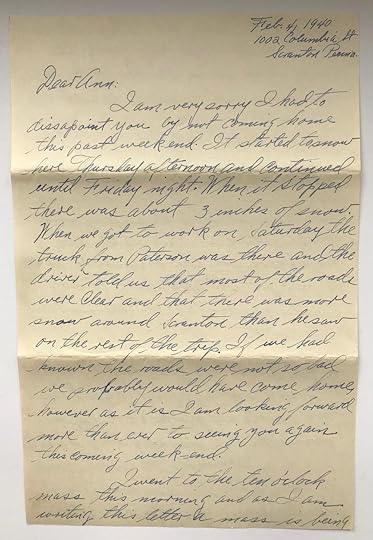 Feb. 4, 1940
1002 Columbia St
Scranton Penna.
Dear Ann:
I am very sorry I had to
dissapoint you by not coming home
this past weekend. It started to snow
here Thursday afternoon and continued
until Friday night. When it stopped
there was about 3 inches of snow.
When we got to work on Saturday the
truck from Paterson was there and the
driver told us that most of the roads
were clear and that there was more
snow around Scranton than he saw
on the rest of the trip. If we had
known the roads were not so bad
we probably would have come home,
however as it is I am looking forward
more than ever to seeing you again
this coming week-end.
I went to the ten o'clock
mass this morning and as I am
writing this letter a mass is being